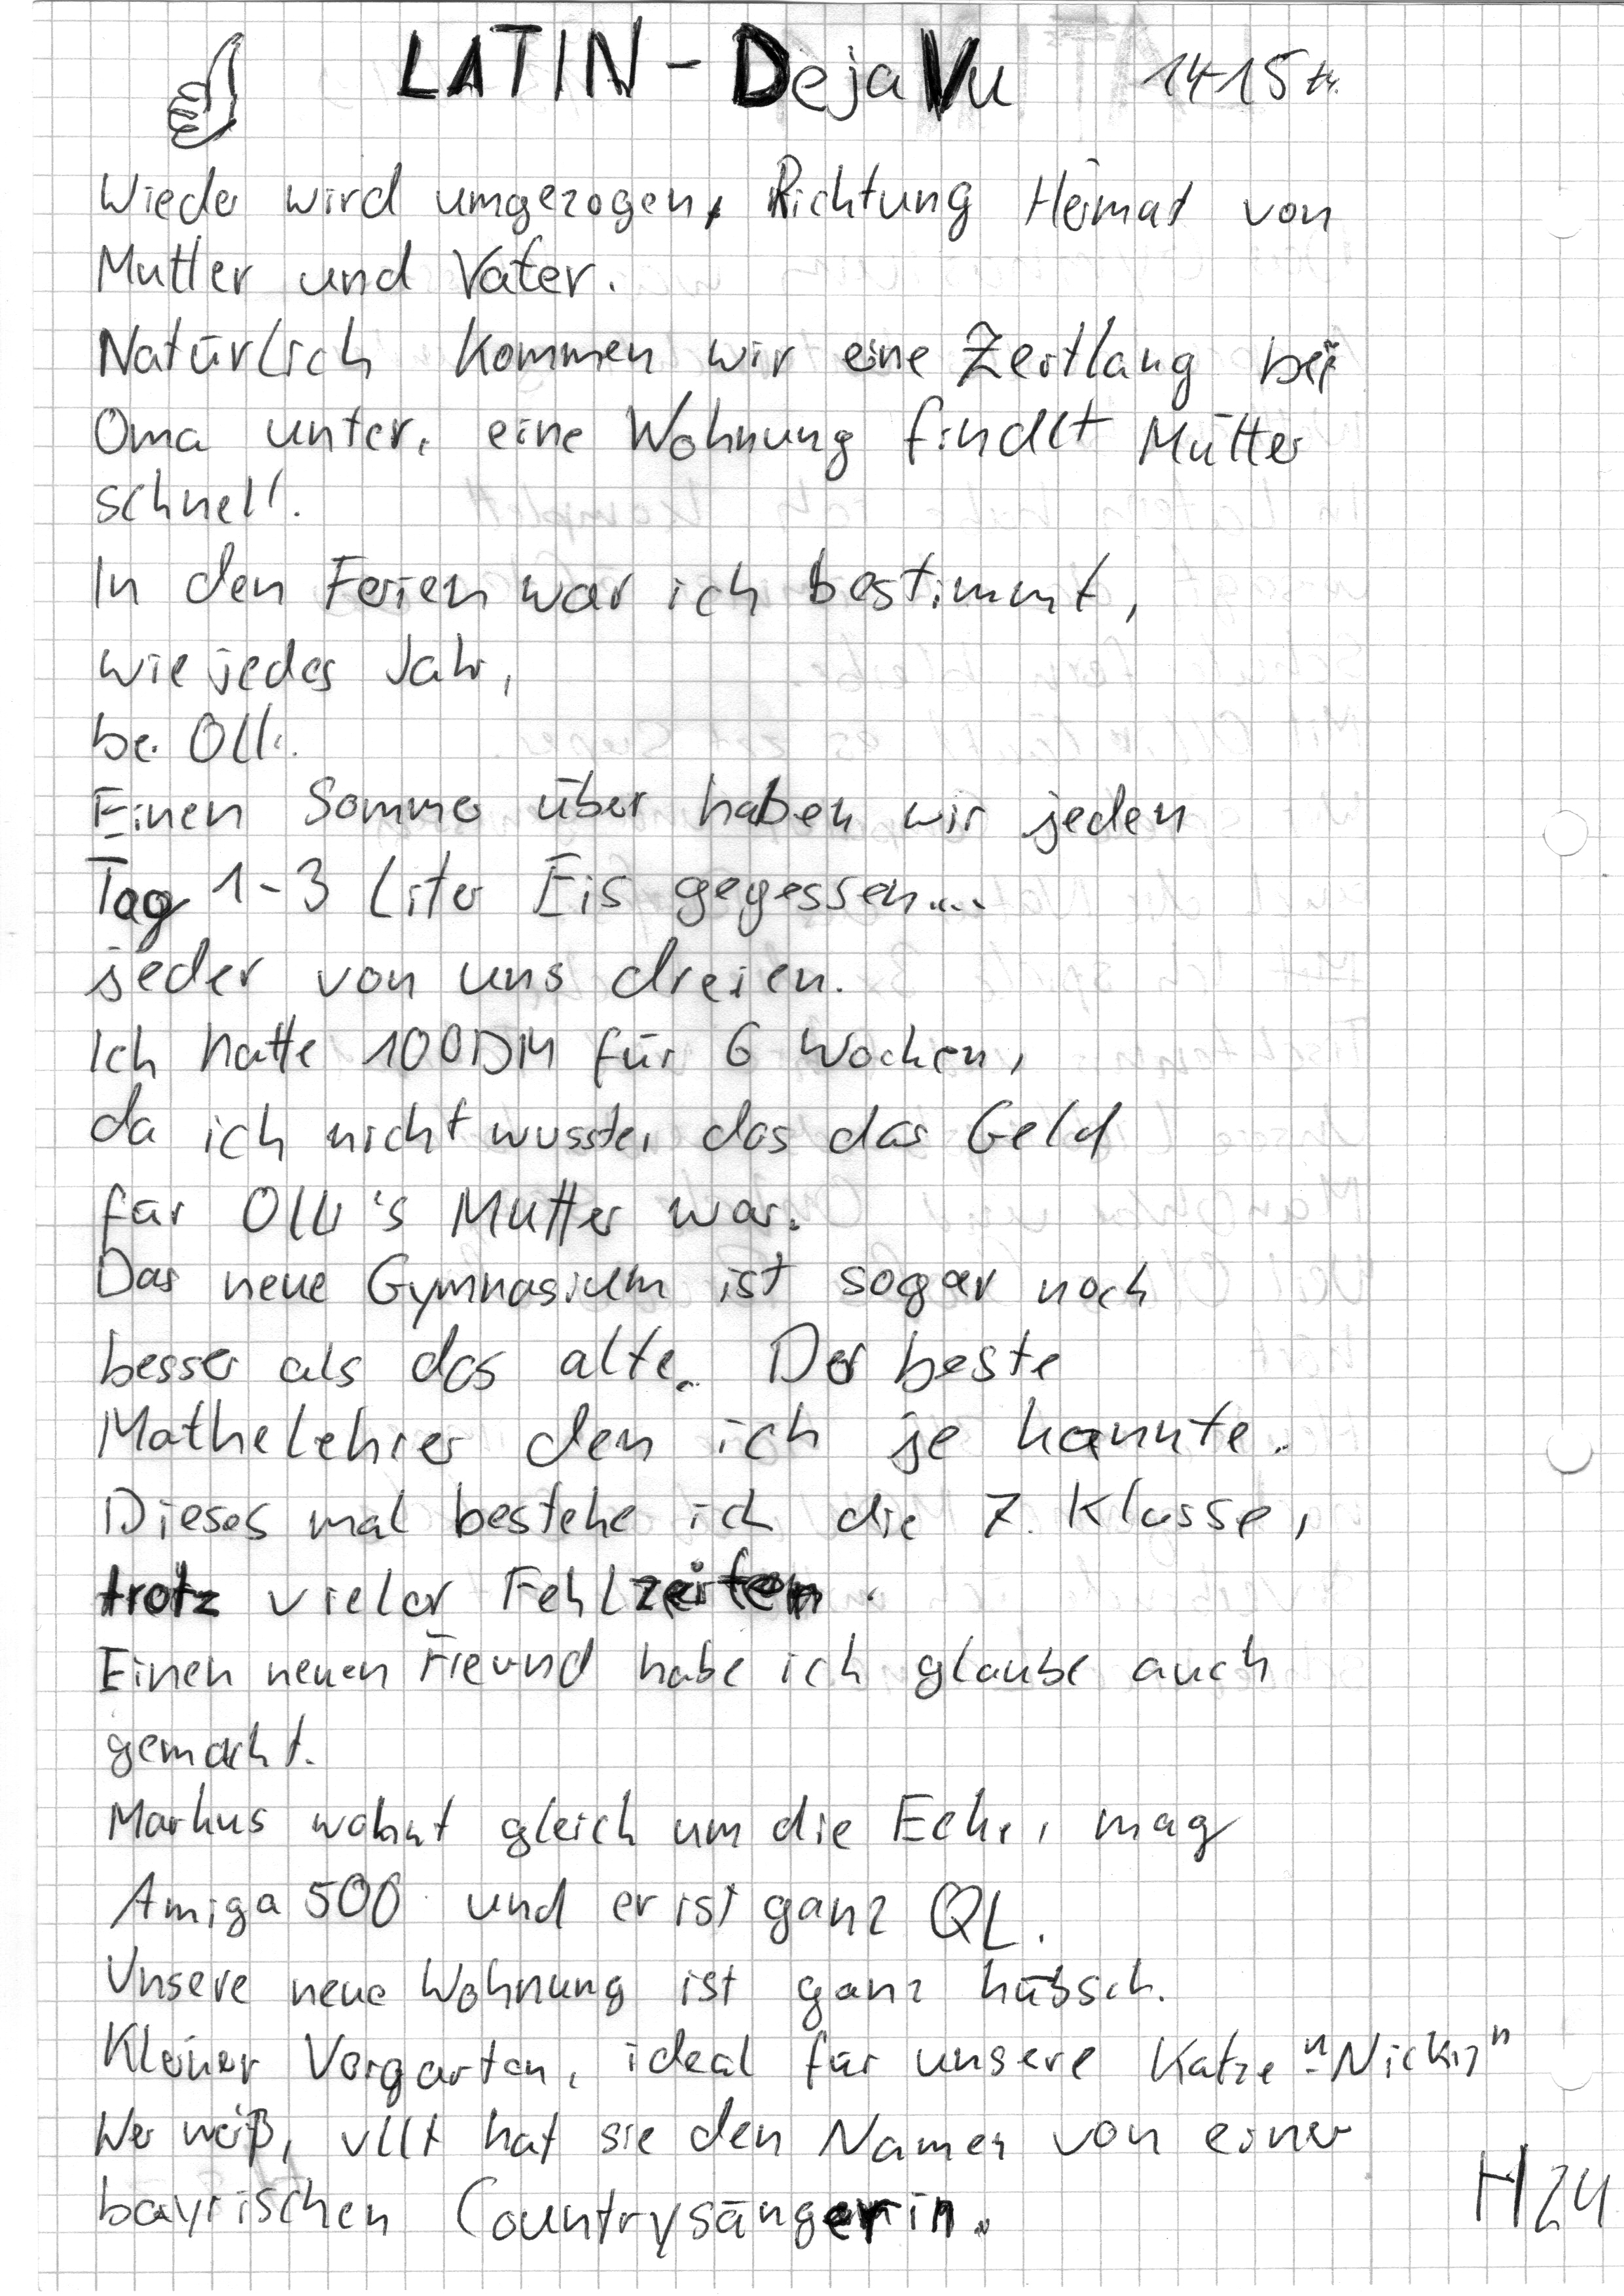 LATIN - DejaVu 14-15
Wieder wird umgezogen, Richtung Heimat von
Mutter und Vater.
Natürlich kommen wir eine Zeitlang bei
Oma unter, eine Wohnung findet Mutter
schnell.
In den Ferien war ich bestimmt,
wie jedes Jahr,
bei Olli.
Einen Sommer über haben wir jeden
Tag 1-3 Liter Eis gegessen....
jeder von uns dreien.
Ich hatte 100DM für 6 Wochen,
da ich nicht wusste, das das Geld
für Olli's Mutter war.
Das neue Gymnasium ist sogar noch
besser als das alte. Der beste
Mathelehrer den ich je kannte.
Dieses mal bestehe ich die 7. Klasse,
trotz vieler Fehlzeiten.
Einen neuen Freund habe ich glaube auch
gemacht.
Markus wohnt gleich um die Ecke, mag
Amiga 500 und er ist ganz OK.
Unsere neue Wohnung ist ganz hübsch.
Kleiner Vorgarten, ideal für unsere Katze "Nicki"
Wer weiß, vllt hat sie den Namen von einer
bayrischen Countrysängerin.
H24